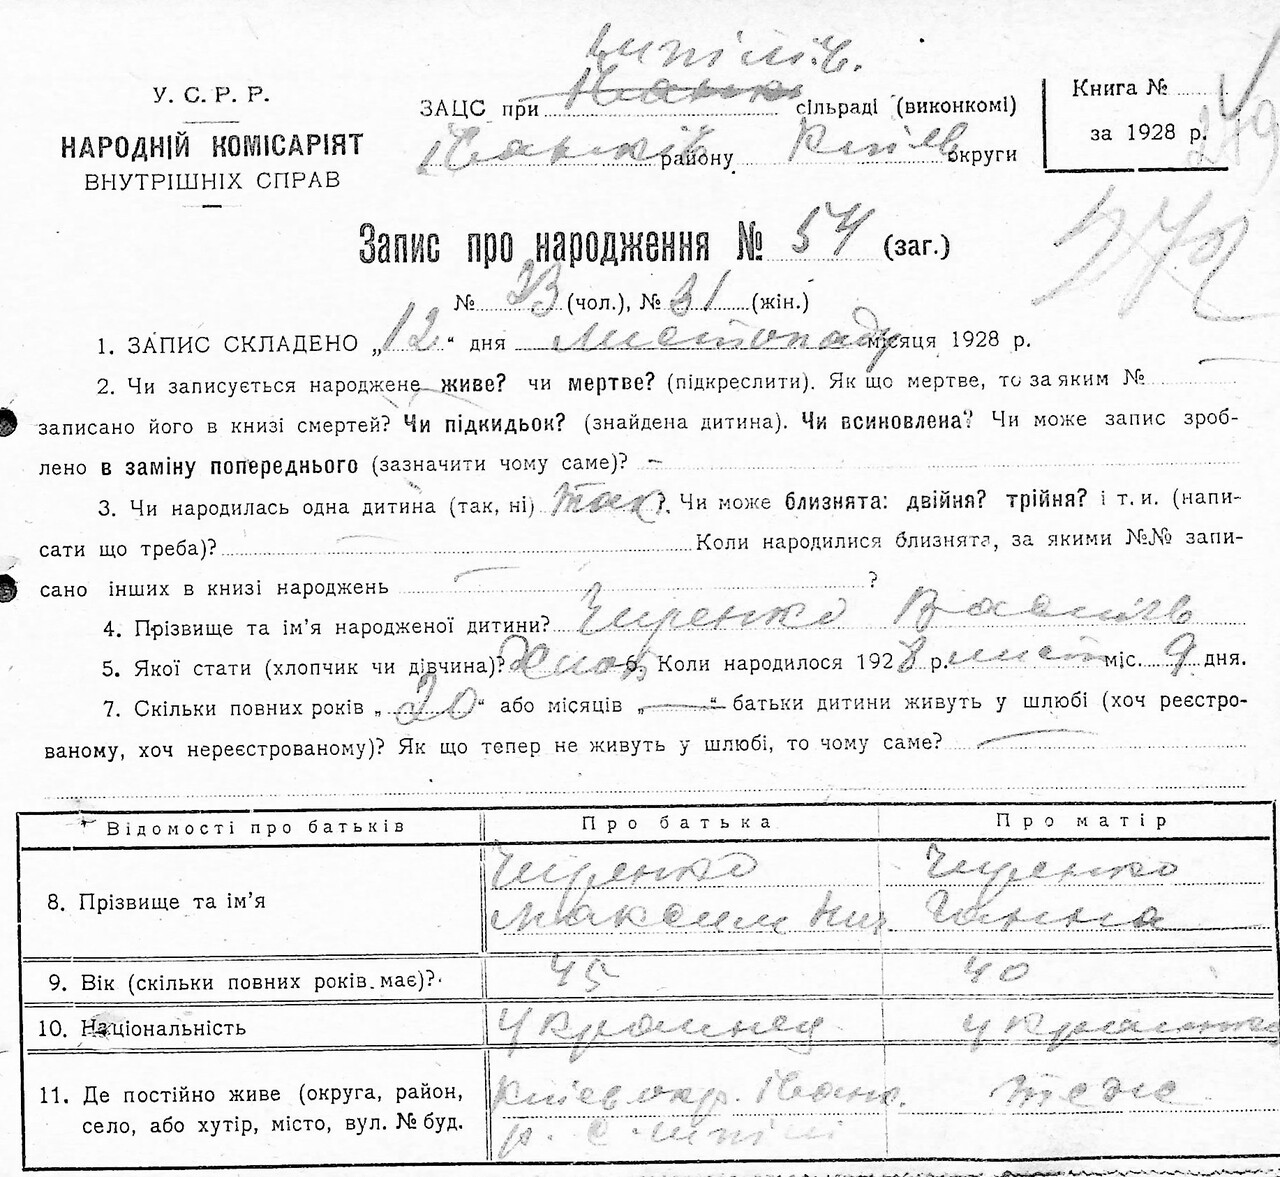 Шпілів.
У. С. Р. Р.
НАРОДНІЙ КОМІСАРІЯТ
ВНУТРІШНІХ СПРАВ
ЗАЦС при сільраді (виконкомі)
Іванків району Київ округи
Книга №
за 1928 р.
Запис про народження № 54 (заг.)
№ 23 (чол.), № 31 (жін.)
1. ЗАПИС СКЛАДЕНО „12“ дня листопаду місяця 1928 р.
2. Чи записується народжене живе? чи мертве? (підкреслити). Як що мертве, то за яким №
записано його в книзі смертей? Чи підкидьок? (знайдена дитина). Чи всиновлена? Чи може запис зроб-
лено в заміну попереднього (зазначити чому саме)? —
3. Чи народилась одна дитина (так, ні) так?. Чи може близнята: двійня? трійня? і т. и. (напи-
сати що треба)? Коли народилися близнята, за якими №№ запи-
сано інших в книзі народжень ?
4. Прізвище та ім’я народженої дитини? Чиренко Василь
5. Якої стати (хлопчик чи дівчина)? Хлоп 6. Коли народилося 1928 р. лист міс. 9 дня.
7. Скільки повних років „20“ або місяців „—“ батьки дитини живуть у шлюбі (хоч реєстро-
ваному, хоч нереєстрованому)? Як що тепер не живуть у шлюбі, то чому саме? —
Відомості про батьків Про батька Про матір
8. Прізвище та ім’я Чиренко Максим Чиренко Ганна
9. Вік (скільки повних років має)? 45 40
10. Національність Українец Українка
11. Де постійно живе (округа, район, Київ окр. Іванк. теж
село, або хутір, місто, вул. № буд. р. с. Шпілі